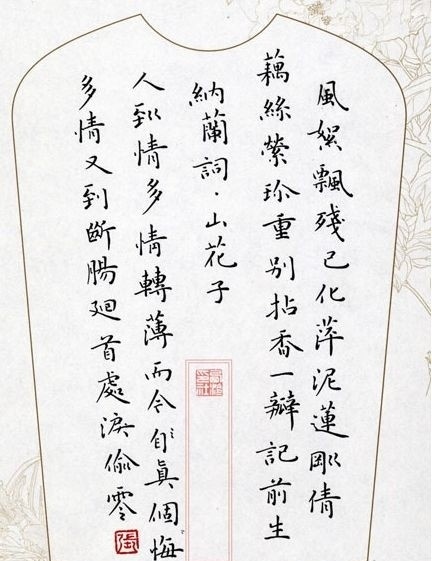 風絮飄殘已化萍泥蓮剛倩
藕絲縈珍重別拈香一瓣記前生
納蘭詞·山花子
人到情多情轉薄而今自真個悔
多情又到斷腸廻首處淚偷零